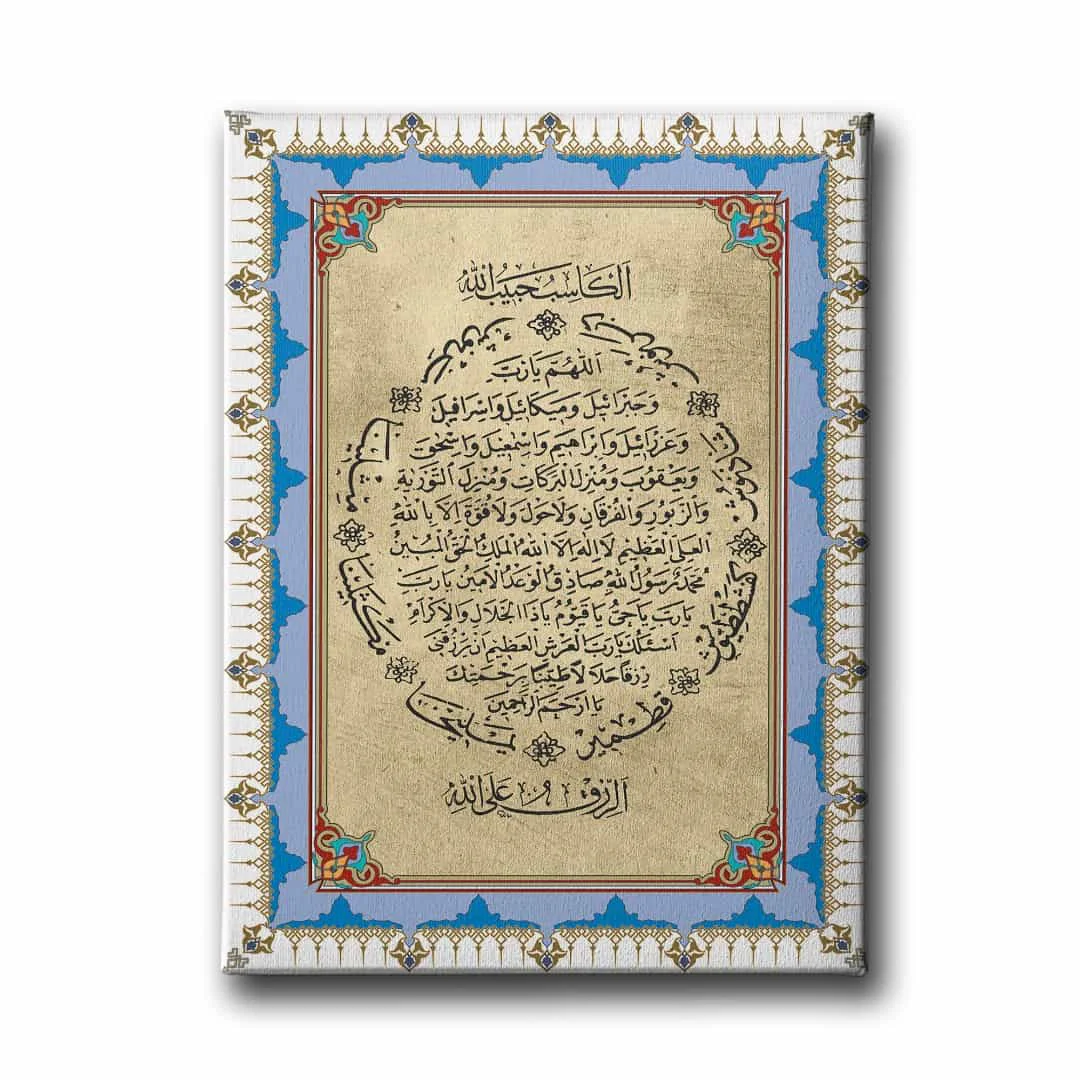 اَلْكَاسِبُ حَبِيبُ اللهِ
اَللّٰهُمَّ يَا رَبَّ
وَجَبْرَائِيلَ وَمِيكَائِيلَ وَاِسْرَافِيلَ
وَعَزْرَائِيلَ وَاِبْرَاهِيمَ وَاِسْمٰعِيلَ وَاِسْحٰقَ
وَيَعْقُوبَ وَمُنْزِلَ الْبَرَكَاتِ وَمُنْزِلَ التَّوْرٰيةِ
وَالزَّبُورِ وَالْفُرْقَانِ وَلَاحَوْلَ وَلَاقُوَّةَ اِلَّا بِاللهِ
الْعَلِىِّ الْعَظِيمِ لَا اِلٰهَ اِلَّا اللهُ الْمَلِكُ الْحَقُّ الْمُبِينُ
مُحَمَّدٌ رَسُولُ اللهِ صَادِقُ الْوَعْدِ الْاَمِينُ يَارَبِّ
يَارَبِّ يَاحَىُّ يَاقَيُّومُ يَاذَا الْجَلَالِ وَالْاِكْرَامِ
اَسْئَلُكَ يَارَبَّ الْعَرْشِ الْعَظِيمِ اَنْ يَرْزُقَنِى
رِزْقًا حَلَالًا طَيِّبًا بِرَحْمَتِكَ
يَا اَرْحَمَ الرَّاحِمِينَ
يَمْلِيخَا
مَكْثَلِينَا
مِثْلِينَا
مَرْنُوشْ
دَبَرْنُوشْ
شَاذَنُوشْ
كَفَشْطَطَيُوشْ
قِطْمِيرْ
اَلرِّزْقُ عَلَى اللهِ